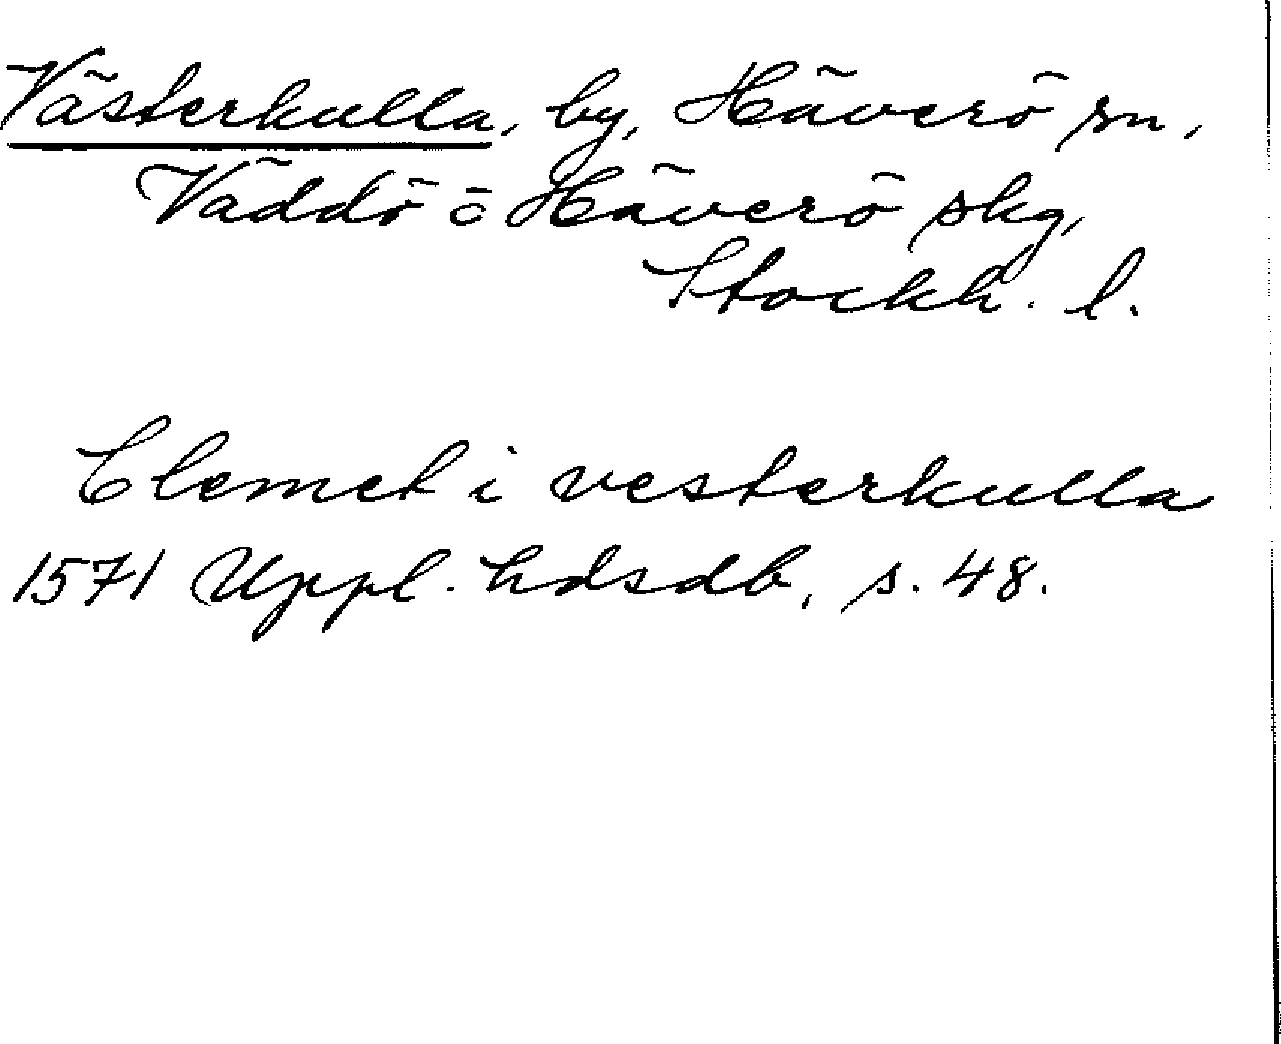 Västerkulla, by, Häverö sn,
Väddö o Häverö skg,
Stockh. l.
Clemet i vesterkulla
1571 Uppl. hdsdb, s. 48.